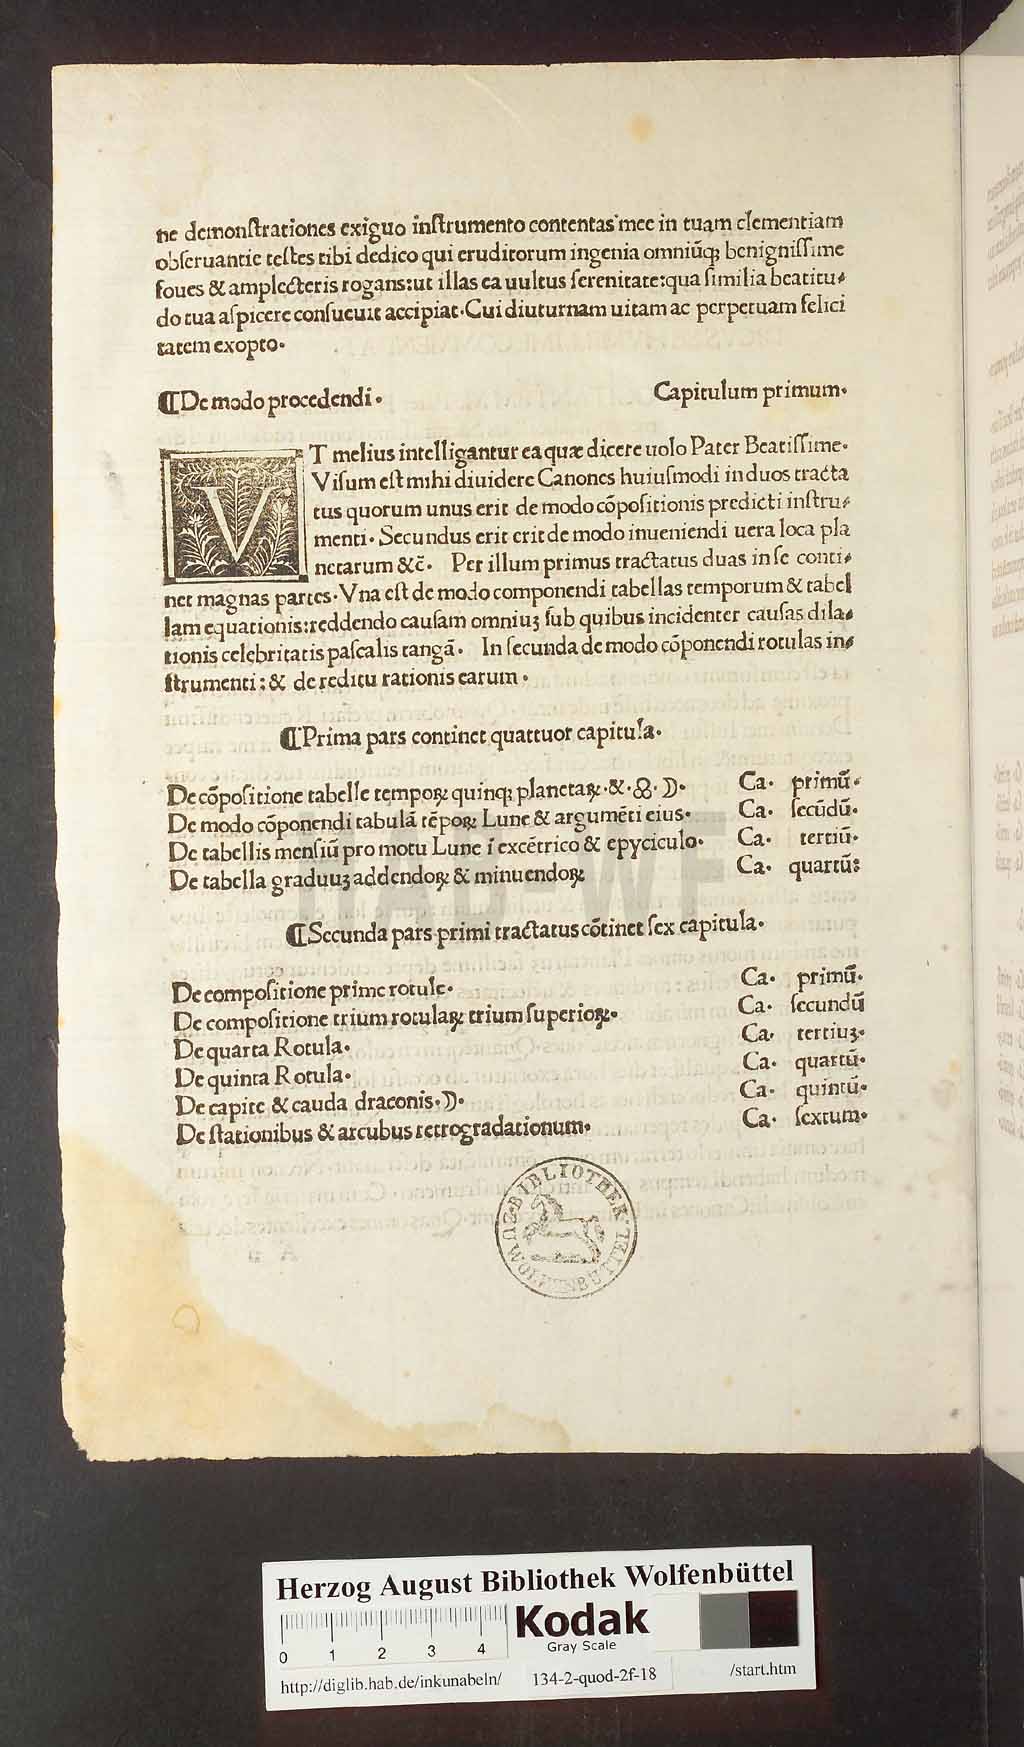 ne demonſtrationes exiguo inſtrumento contentas mee in tuam clementiam
obſeruantie teſtes tibi dedico qui eruditorum ingenia omniūqꝫ benigniſſime
foues & amplecteris rogans:ut illas ea uultus ſerenitate:qua ſimilia beatitu⸗
do tua aſpicere conſueuit accipiat. Cui diuturnam uitam ac perpetuam felici
tatem exopto.
¶De modo procedendi. Capitulum primum.
VT melius intelligantur ea quæ dicere uolo Pater Beatiſſime.
Viſum eſt mihi diuidere Canones huiuſmodi in duos tracta
tus quorum unus erit de modo cōpoſitionis predicti inſtru⸗
menti. Secundus erit erit de modo inueniendi uera loca pla
netarum &c̄. Per illum primus tractatus duas in ſe conti⸗
net magnas partes. Vna eſt de modo componendi tabellas temporum & tabel
lam equationis:reddendo cauſam omniuꝫ ſub quibus incidenter cauſas dila⸗
tionis celebritatis paſcalis tangā. In ſecunda de modo cōponendi rotulas in⸗
ſtrumenti:& de reditu rationis earum.
¶Prima pars continet quattuor capitula.
De cōpoſitione tabelle tempoꝝ quinqꝫ planetaꝝ.&.☊.☽. Ca. primū.
De modo cōponendi tabulā tēpoꝝ Lune & argumēti eius. Ca. ſecūdū.
De tabellis menſiū pro motu Lune ī excētrico & epyciculo. Ca. tertiū.
De tabella graduuꝫ addendoꝝ & minuendoꝝ Ca. quartū:
¶Secunda pars primi tractatus cōtinet ſex capitula.
De compoſitione prime rotule. Ca. primū.
De compoſitione trium rotulaꝝ trium ſuperioꝝ. Ca. ſecundū
De quarta Rotula. Ca. tertiuꝫ.
De quinta Rotula. Ca. quartū.
De capite & cauda draconis.☽. Ca. quintū.
De ſtationibus & arcubus retrogradationum. Ca. ſextum.
HAB-WF
BIBLIOTHEK ZU WOLFENBUTTEL
Herzog August Bibliothek Wolfenbüttel
Kodak
Gray Scale
0 1 2 3 4
http://diglib.hab.de/inkunabeln/ 134-2-quod-2f-18 /start.htm